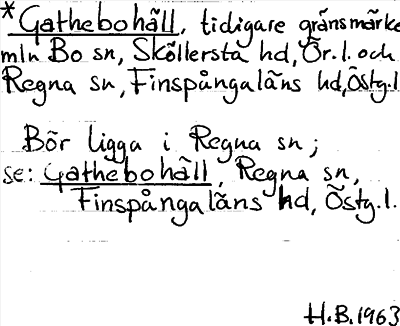 *Gathebohäll, tidigare gränsmärke
mln Bo sn, Sköllersta hd, Ör.l. och
Regna sn, Finspångaläns hd, Östg.l.
Bör ligga i Regna sn;
se: Gathebohäll, Regna sn,
Finspångaläns hd, Östg.l.
H.B. 1963